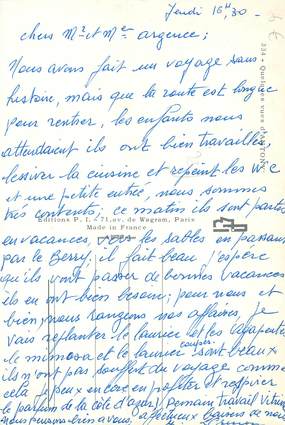 Jeudi 16H,30 -
chers Mr et Mme argence;
Nous avons fait un voyage sans
histoire, mais que la route est longue
pour rentrer, les enfants nous
attendaient ils ont bien travaillés,
lessiver la cuisine et repeint les W.C
et une petite entrée, nous sommes
très contents, ce matin ils sont partis
en vacances, vers les sables en passant
par le Berry; il fait beau j'espère
qu'ils vont passer de bonnes vacances
ils en ont bien besoin; pour nous et
bien, nous rangeons nos affaires, je
vais replanter le laurier et les
le mimosa et le laurier coupés sont beaux
ils n'ont pas souffert du voyage comme
cela je peux encore en profiter et respirer
le parfum de la côte d'azur, demain travail
nous pensons bien à vous, affectueux baisers de nous
Editions P. I. - 71, av. de Wagram, Paris
Made in France
334 - Quelques vues d'ANTONY